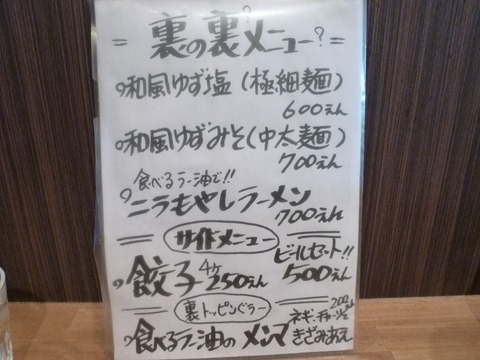 = 裏の裏メニュー? =
和風ゆず塩(極細麺)
600えん
和風ゆずみそ(中太麺)
700えん
食べるラー油で!!
ニラもやしラーメン
700えん
サイドメニュー
餃子 4ケ 250えん
ビールセット!!
500えん
裏トッピングラー
食べるラー油のメンマ
200えん
ネギ・チャーシュー
きざみあえ